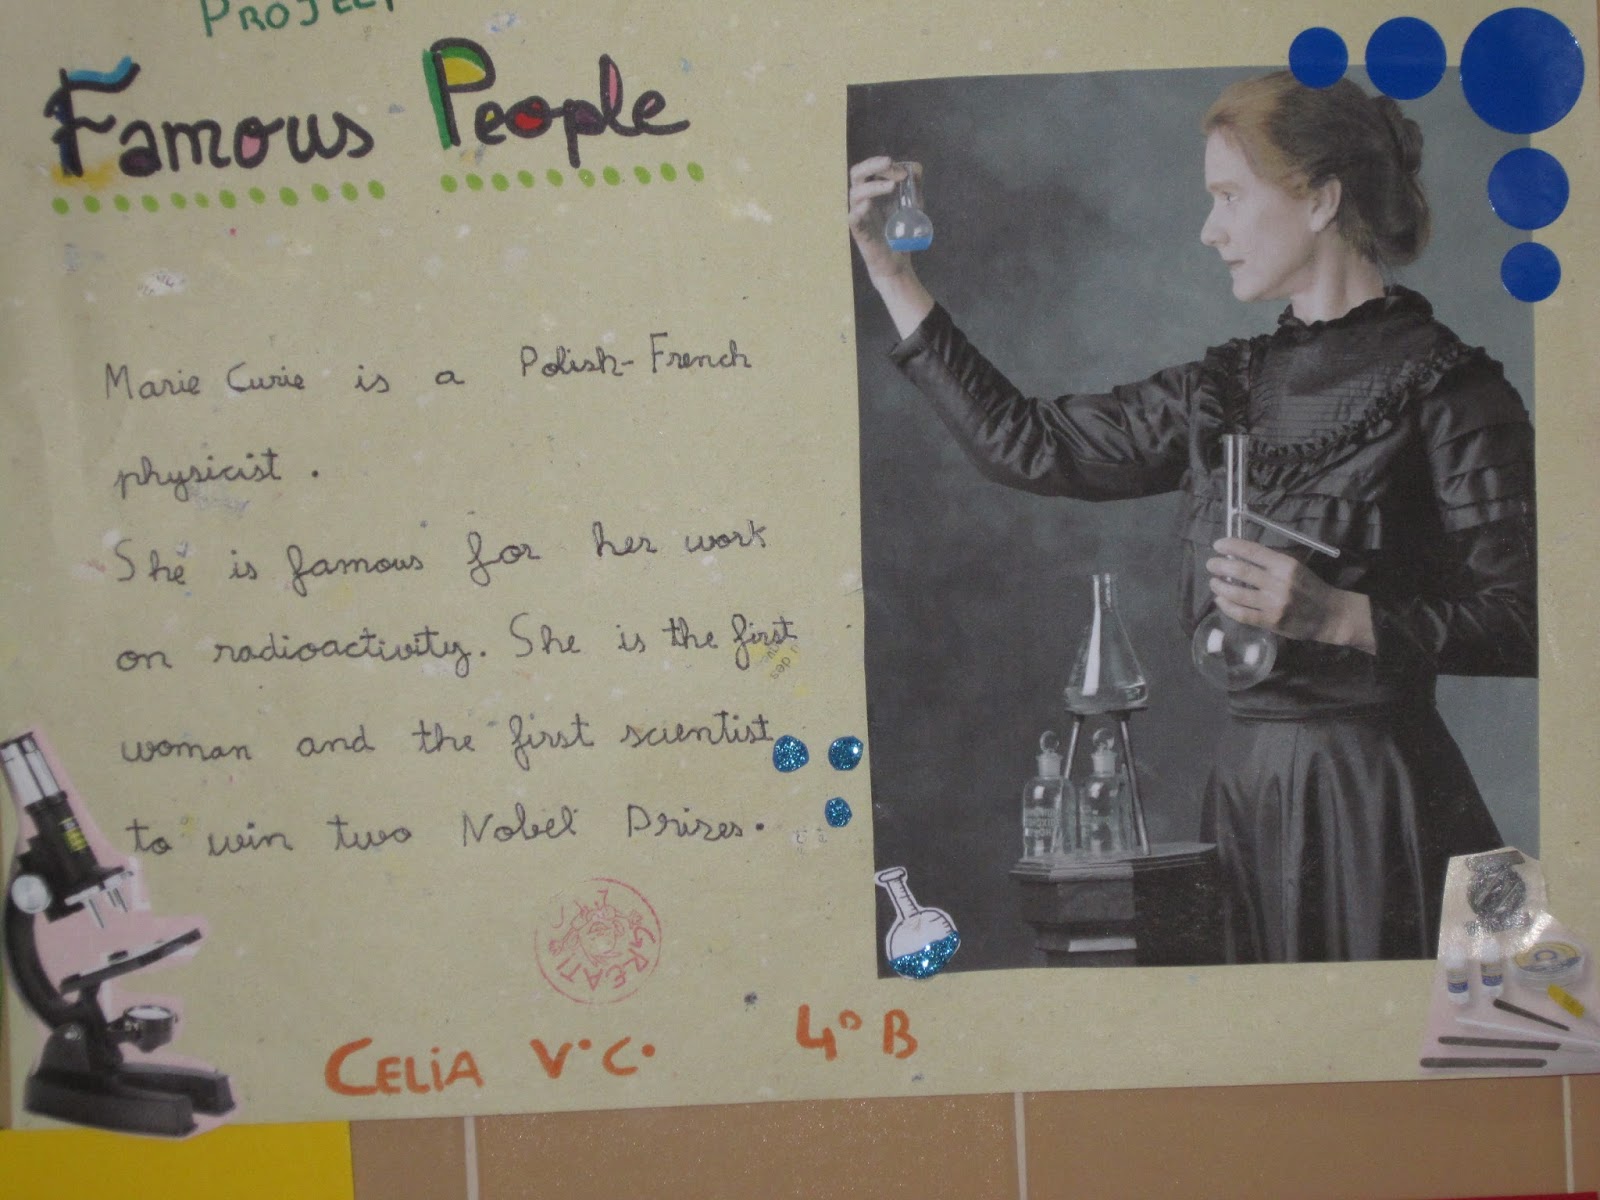 PROJECT
Famous People
Marie Curie is a Polish-French
physicist.
She is famous for her work
on radioactivity. She is the first
woman and the first scientist
to win two Nobel Prizes.
GREAT!
CELIA V.C. 4º B